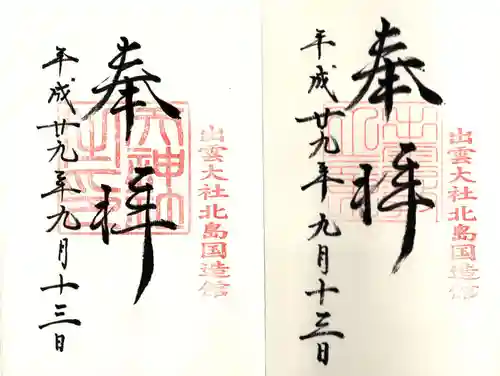 出雲大社北島国造館
奉拝
平成廿九年九月十三日
出雲大社北島国造館
奉拝
平成廿九年九月十三日